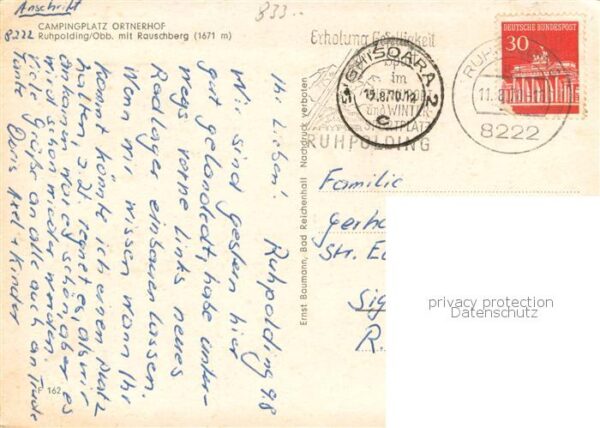 Anschrift
833-
CAMPINGPLATZ ORTNERHOF
8222 Ruhpolding/Obb. mit Rauschberg (1671 m)
Ruhpolding 9.8
Ihr Lieben!
Wir sind gestern hier
gut gelandet, habe unter-
wegs vorne links neues
Radlager einbauen lassen.
Wenn wir wissen wann Ihr
kommt könnte ich einen Platz
halten. z. Zt. regnet es, als wir
ankamen war es schön, aber es
wird schon wieder werden.
Viele Grüße an alle auch an
Tante
Axel + Kinder
F 162
Ernst Baumann, Bad Reichenhall Nachdruck verboten
Erholung Geselligkeit
Sport
im
und WINTER-
SPORTPLATZ
RUHPOLDING
SIGHISOARA 2
15.8.70.12
c
RUHPOLDING
11.8.70
8222
DEUTSCHE BUNDESPOST
30
Familie
Gerha
Str.
Sig
R.
privacy protection
Datenschutz